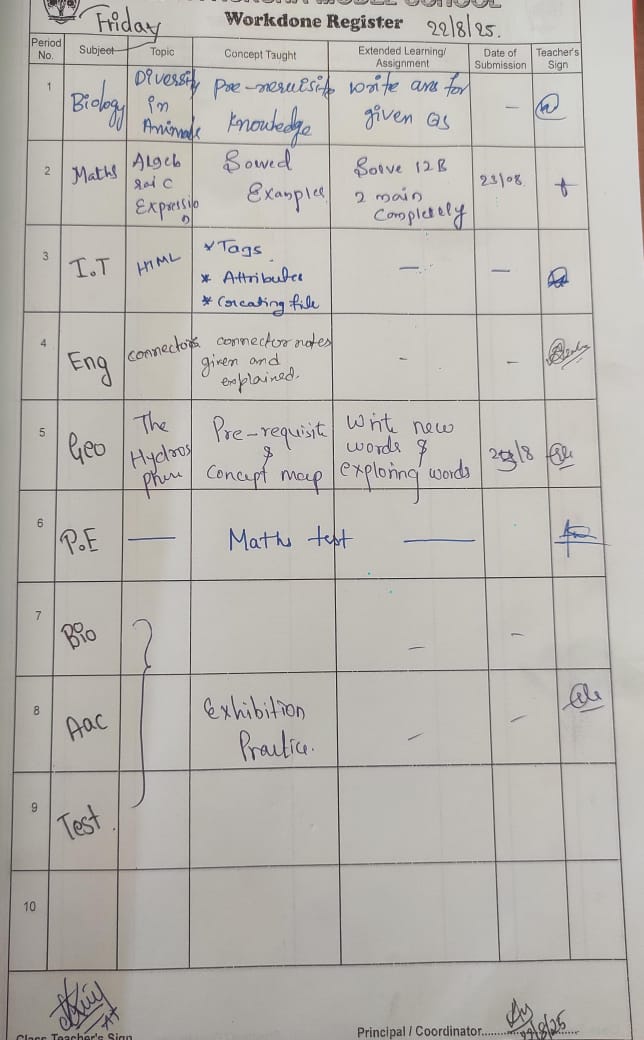 MODEL SCHOOL
Friday
Workdone Register 22/8/25.
Period No. Subject Topic Concept Taught Extended Learning/ Assignment Date of Submission Teacher's Sign
1 Biology Diversity in Animals Pre-requisite Knowledge write ans for given Qs –
2 Maths Algeb raic Expressio n Sowed Examples Solve 12B 2 main completely 23/08
3 I.T HTML * Tags * Attributes * Creating file – –
4 Eng connectors connector notes given and explained. - -
5 Geo The Hydros phere Pre-requisit & Concept map Writ new words & exploring words
6 P.E — Maths test —
7 Bio – –
8 Aac Exhibition Practice. – –
9 Test.
10
Class Teacher's Sign
Principal / Coordinator........